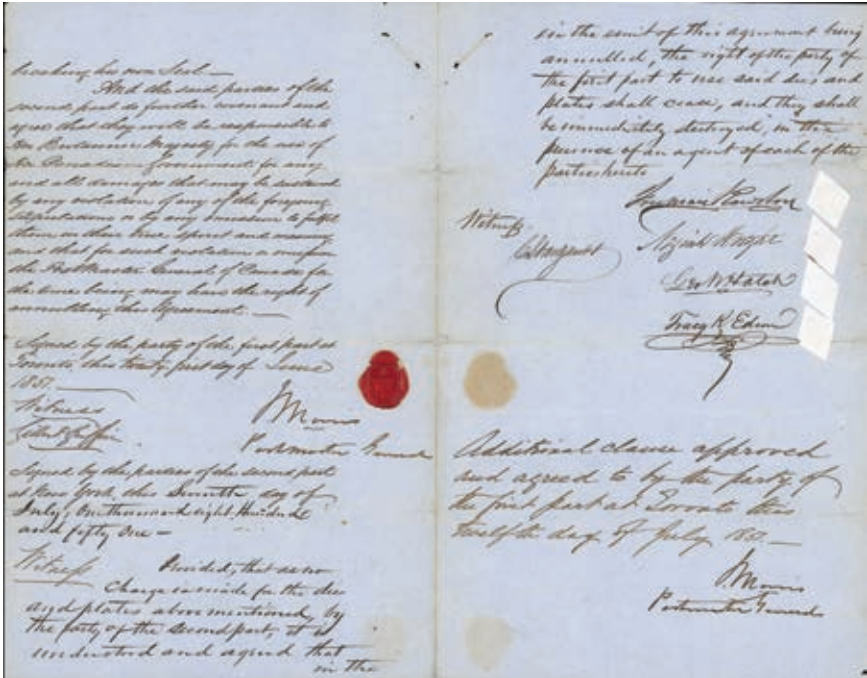 breaking his own Seal —
And the said parties of the
second part do further covenant and
agree that they will be responsible to
Her Britannic Majesty for the use of
her Canadian Government for any
and all damages that may be sustained
by any violation of any of the foregoing
stipulations or by any omission to fulfil
them in their true spirit and meaning
and that for such violation or omission
the Post Master General of Canada for
the time being may have the right of
annulling this Agreement. —
Signed by the party of the first part at
Toronto, this twenty first day of June
1851. —
Witness
J Morris
Postmaster General
Signed by the parties of the second part
at New York, this Seventh day of
July, One thousand eight Hundred
and fifty One —
Witness
Provided, that as no
Charge is made for the dies
and plates above mentioned, by
the party of the second part, it is
understood and agreed that
in the
in the event of this agreement being
annulled, the right of the party of
the first part to use said dies and
plates shall cease, and they shall
be immediately destroyed, in the
presence of an agent of each of the
parties hereto
Witness
Freeman Rawdon
Neziah Wright
Geo. W. Hatch
Tracy R. Edson
Additional clause approved
and agreed to by the party of
the first part at Toronto this
twelfth day of July 1851. —
J. Morris
Postmaster General